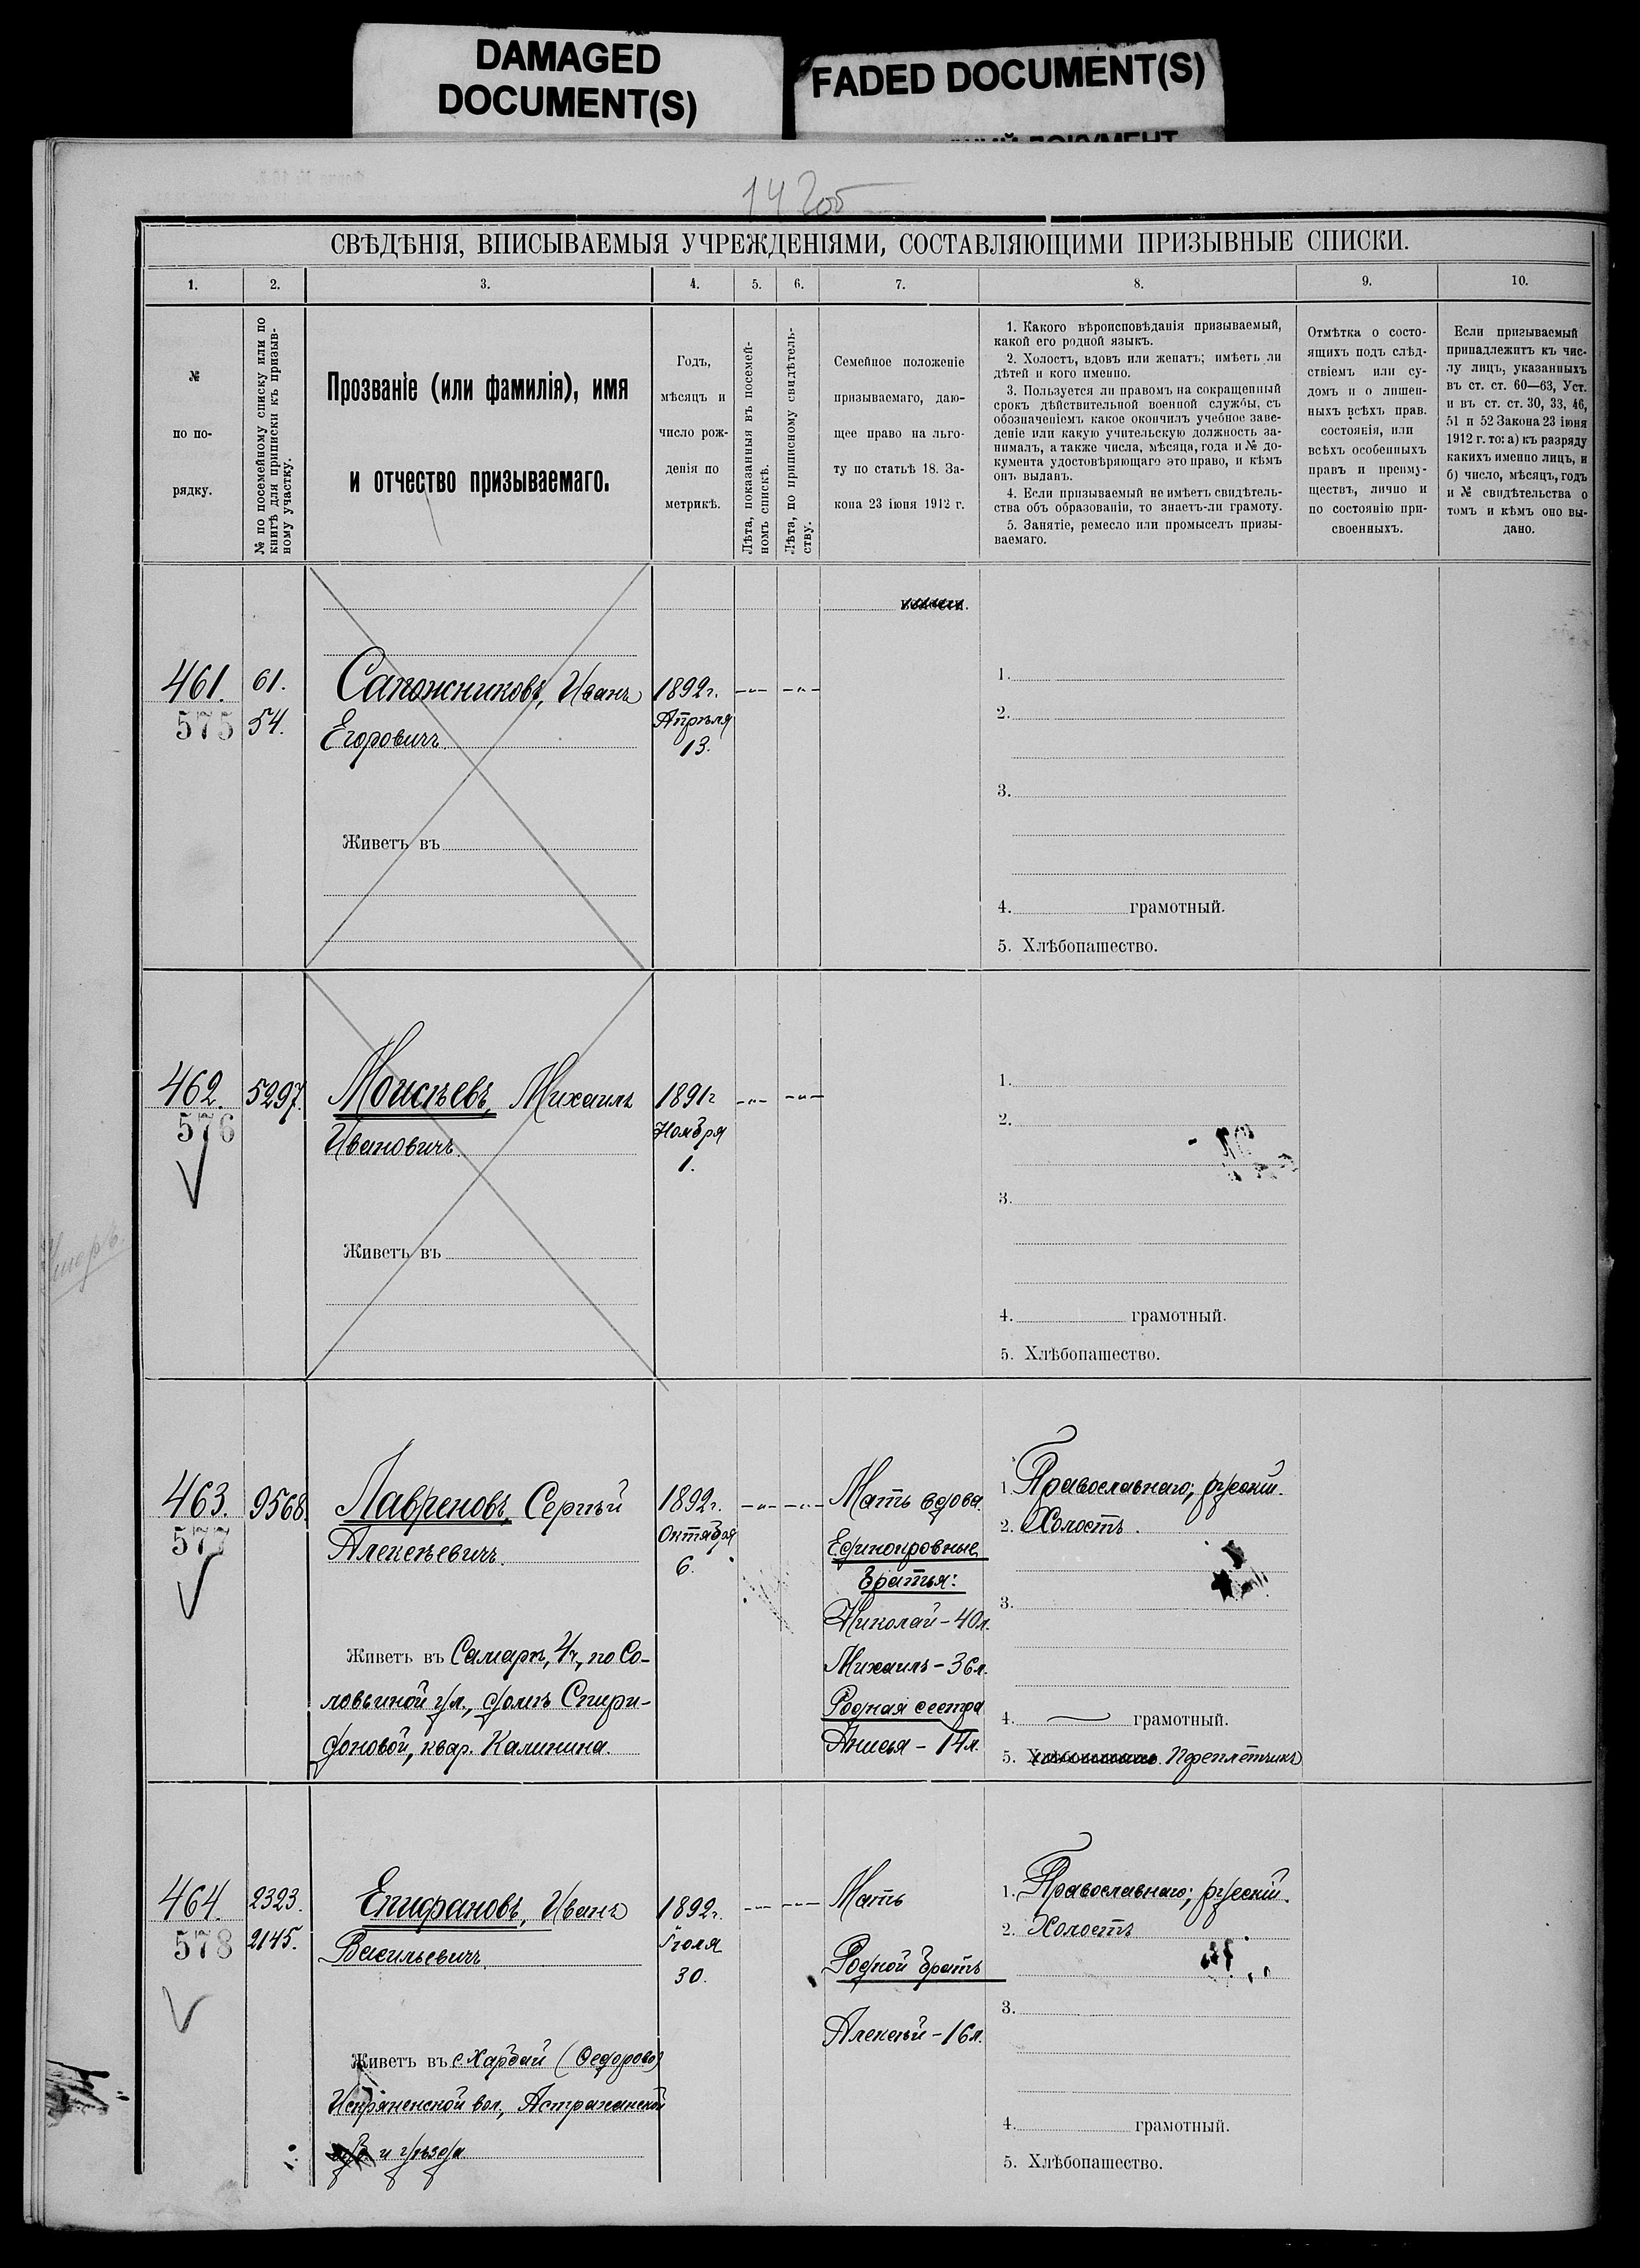 DAMAGED
DOCUMENT(S)
FADED DOCUMENT(S)
142об
СВѢДѢНІЯ, ВПИСЫВАЕМЫЯ УЧРЕЖДЕНІЯМИ, СОСТАВЛЯЮЩИМИ ПРИЗЫВНЫЕ СПИСКИ.
1. 2. 3. 4. 5. 6. 7. 8. 9. 10.
№
по по-
рядку.
№ по посемейному списку или по
книгѣ для приписки къ призыв-
ному участку.
Прозваніе (или фамилія), имя
и отчество призываемаго.
Годъ,
мѣсяцъ и
число рож-
денія по
метрикѣ.
Лѣта, показанныя въ посемей-
номъ спискѣ.
Лѣта, по приписному свидѣтель-
ству.
Семейное положеніе
призываемаго, даю-
щее право на льго-
ту по статьѣ 18. За-
кона 23 іюня 1912 г.
1. Какого вѣроисповѣданія призываемый,
какой его родной языкъ.
2. Холостъ, вдовъ или женатъ; имѣетъ ли
дѣтей и кого именно.
3. Пользуется ли правомъ на сокращенный
срокъ дѣйствительной военной службы, съ
обозначеніемъ какое окончилъ учебное заве-
деніе или какую учительскую должность за-
нималъ, а также числа, мѣсяца, года и № до-
кумента удостовѣряющаго это право, и кѣмъ
онъ выданъ.
4. Если призываемый не имѣетъ свидѣтель-
ства объ образованіи, то знаетъ-ли грамоту.
5. Занятіе, ремесло или промыселъ призы-
ваемаго.
Отмѣтка о состо-
ящихъ подъ слѣд-
ствіемъ или су-
домъ и о лишен-
ныхъ всѣхъ прав.
состоянія, или
всѣхъ особенныхъ
правъ и преиму-
ществъ, лично и
по состоянію при-
своенныхъ.
Если призываемый
принадлежитъ къ чис-
лу лицъ, указанныхъ
въ ст. ст. 60—63, Уст.
и въ ст. ст. 30, 33, 46,
51 и 52 Закона 23 іюня
1912 г. то: а) къ разряду
какихъ именно лицъ, и
б) число, мѣсяцъ, годъ
и № свидѣтельства о
томъ и кѣмъ оно вы-
дано.
461.
575
61.
54.
Сапожниковъ, Иванъ
Егоровичъ
Живетъ въ
1892 г.
Апрѣля
13.
1.
2.
3.
4. грамотный.
5. Хлѣбопашество.
Умеръ.
462.
576
5297.
Моисѣевъ, Михаилъ
Ивановичъ.
Живетъ въ
1891 г
Ноября
1.
1.
2.
3.
4. грамотный.
5. Хлѣбопашество.
463.
577
9568.
Лавреновъ, Сергѣй
Алексѣевичъ.
Живетъ въ Самарѣ, 4 ч., по Со-
ловьиной ул., домъ Спири-
доновой, квар. Калинина.
1892 г.
Октября
6.
Мать вдова
Единокровные
братья:
Николай - 40 л.
Михаилъ - 36 л.
Родная сестра
Анисья - 14 л.
1. Православнаго; русскій.
2. Холостъ.
3.
4. грамотный.
5. Переплетчикъ
464.
578
2323.
2145.
Епифановъ, Иванъ
Васильевичъ.
Живетъ въ с. Харбай (Федорово)
вол., Астраханской
и уѣзда
1892 г.
Іюля
30.
Мать
Родной братъ
Алексѣй - 16 л.
1. Православнаго; русскій.
2. Холостъ
3.
4. грамотный.
5. Хлѣбопашество.